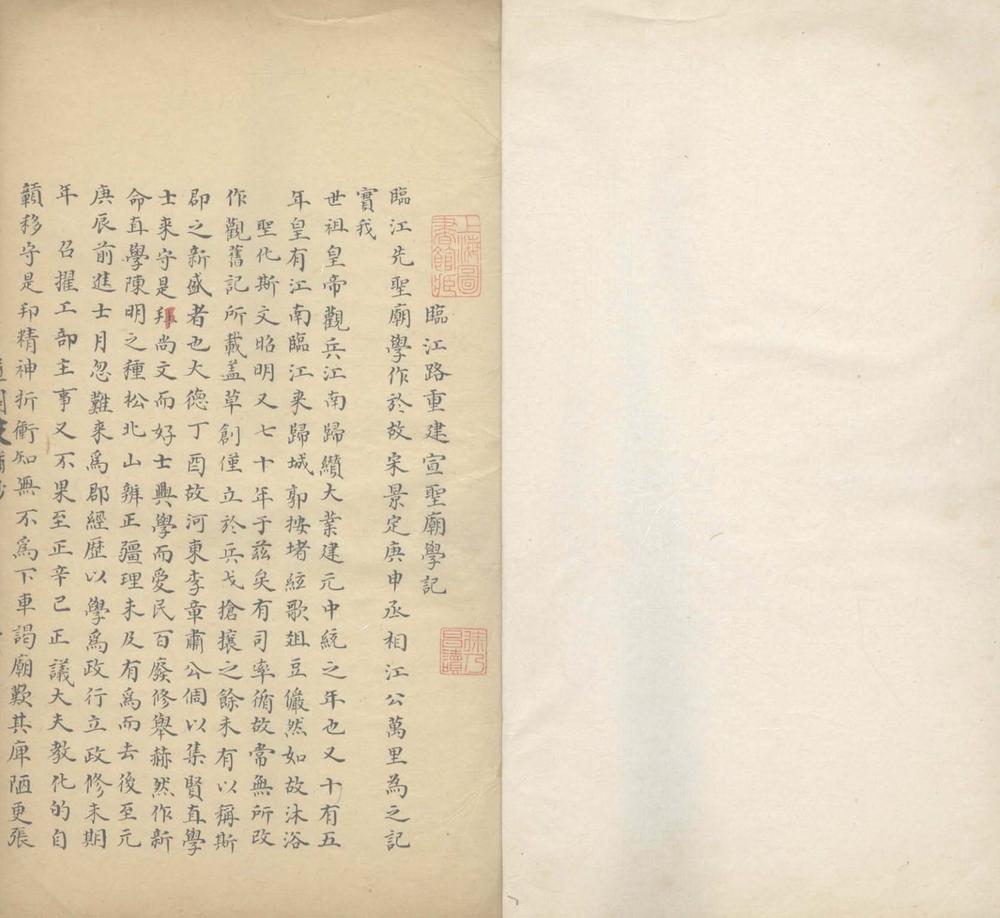 臨江路重建宣聖廟學記
上海圖書館藏
臨江先聖廟學作於故宋景定庚申丞相江公萬里為之記
實我
世祖皇帝觀兵江南歸纘大業建元中統之年也又十有五
年皇有江南臨江來歸城郭按堵絃歌俎豆儼然如故沐浴
聖化斯文昭明又七十年于茲矣有司率循故常無所改
作觀舊記所載盖草創僅立於兵戈搶攘之餘未有以稱斯
郡之新盛者也大德丁酉故河東李章肅公倜以集賢直學
士來守是邦尚文而好士興學而愛民百廢修舉赫然作新
命直學陳明之種松北山辨正疆理未及有為而去後至元
庚辰前進士月忽難來爲郡經歷以學爲政行立政修未期
年 召擢工部主事又不果至正辛已正議大夫教化的自
贛移守是邦精神折衝知無不爲下車謁廟歎其庳陋更張